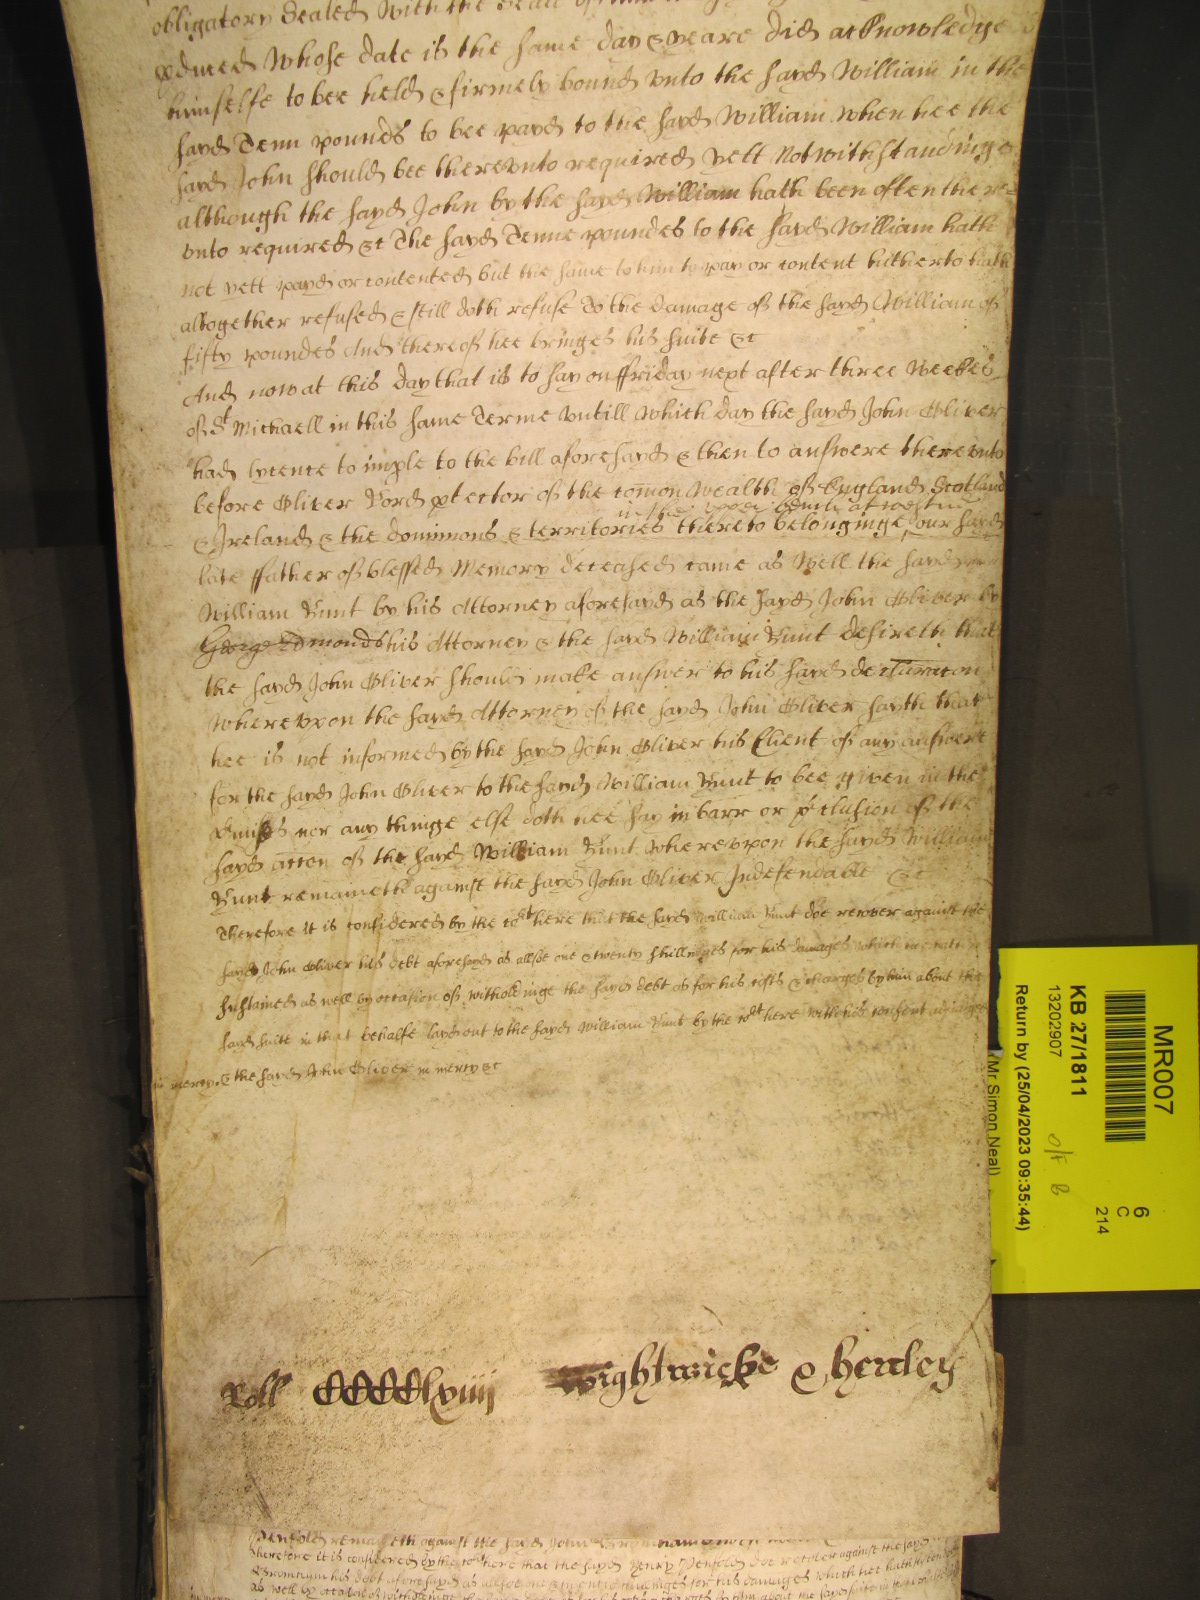 obligatory Sealed with the Seale of him
pduced whose date is the same day & yeare did acknowledge
himselfe to bee held & firmely bound vnto the sayd William in the
sayd Tenn pounds to bee payd to the sayd William when hee the
sayd John should bee therevnto required yett Notwithstandinge
although the sayd John by the sayd William hath been often there=
vnto required &c The sayd Tenne poundes to the sayd William hath
not yett payd or contented but the same to him to pay or content hitherto hath
altogether refused & still doth refuse To the damage of the sayd William of
fifty poundes And thereof hee bringes his suite &c
And now at this day that is to say on ffriday next after three Weekes
of St Michaell in this same Terme vntill which day the sayd John Oliver
had lycence to imple to the bill aforesayd & then to answere therevnto
before Oliver Lord ptector of the comon Wealth of England Scotland
in the upper bench at westm
& Ireland & the dominions & territories thereto belonginge our sayd
late ffather of blessed Memory deceased came as Well the sayd
William Lunt by his Attorney aforesayd as the sayd John Oliver by
George Edmonds his Attorney & the sayd William Lunt desireth that
the sayd John Oliver should make answer to his sayd declaracon
wherevpon the sayd Attorney of the sayd John Oliver sayth that
hee is not informed by the sayd John Oliver his Client of any answere
for the sayd John Oliver to the sayd William Lunt to bee given in the
pmisses nor any thinge else doth hee say in barr or pclusion of the
sayd accon of the sayd William Lunt Wherevpon the sayd William
Lunt remaineth against the sayd John Oliver Indefendable &c
Therefore it is considered by the cort here that the sayd William Lunt doe recover against the
sayd John Oliver his debt aforesayd as allsoe one & twenty shillinges for his damages which hee hath
susstained as well by occasion of witholdinge the sayd debt as for his costs & charges by him about the
sayd suite in that behalfe layd out to the sayd William Lunt by the cort here with his consent adiudged
in mercy & the sayd John Oliver in mercy &c
Roll CCCClxviiij Wightwicke & Henley
Penfold remaineth against the sayd John
Therefore it is considered by the cort here that the sayd Henry Penfold doe recover against the sayd
his debt aforesayd as allsoe one & twenty shillinges for his damages which hee hath
as well by occasion of witholdinge
MR007
KB 27/1811
13202907
Return by (25/04/2023 09:35:44)
(Mr Simon Neal)
6
C
214
O/F B